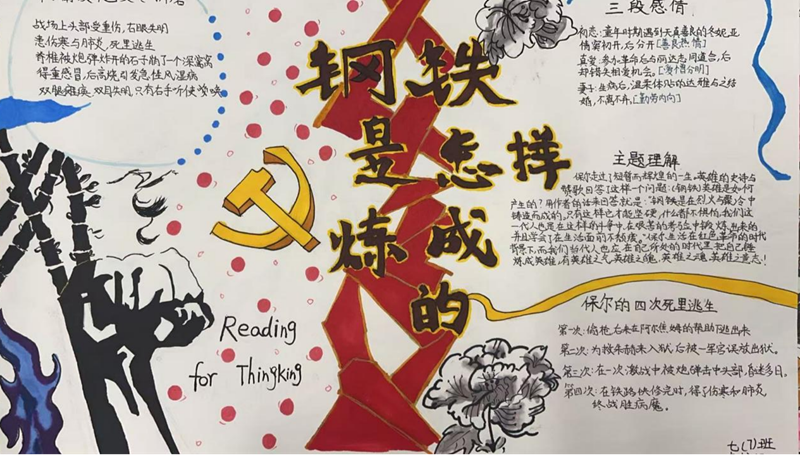 战场上头部受重伤,右眼失明
患伤寒与肺炎,死里逃生
脊椎被炮弹炸开的石子砸了一个深窝窝
得重感冒,后高烧引发急性风湿病
双腿瘫痪,双目失明,只有右手听使唤
钢铁
是怎样
炼成
的
Reading
for Thingking
三段感情
初恋:童年时期遇到天真善良的冬妮亚
情窦初开,后分开[善良热情]
真爱:参加革命后与丽达志同道合,后
却错失相爱机会。[爱憎分明]
妻子:生病后,温柔体贴的达雅与之结
婚,不离不弃,[勤劳内向]
主题理解
保尔走过了短暂而辉煌的一生,英雄的史诗与
赞歌回答了这样一个问题:(钢铁)英雄是如何
产生的?用作者的话来回答就是:"钢铁是在烈火与骤冷中
铸造而成的。只有这样它才能坚硬,什么都不惧怕,我们这
一代人也是在这样的斗争中,在艰苦的考验中锻炼出来的
并且学会了在生活面前不颓废。"保尔生活在红色革命的时代
背景下,而我们每代人也应在自己所处的时代里把自己锤
炼成英雄,有英雄之气,英雄之魄,英雄之魂,英雄之意志!
保尔的四次死里逃生
第一次:
第二次:为救朱赫来入狱,后被一军官误放出狱。
第三次:在一次激战中被炮弹击中头部,昏迷多日。
第四次:在铁路快修完时,得了伤寒和肺炎
终战胜病魔。
七(7)班